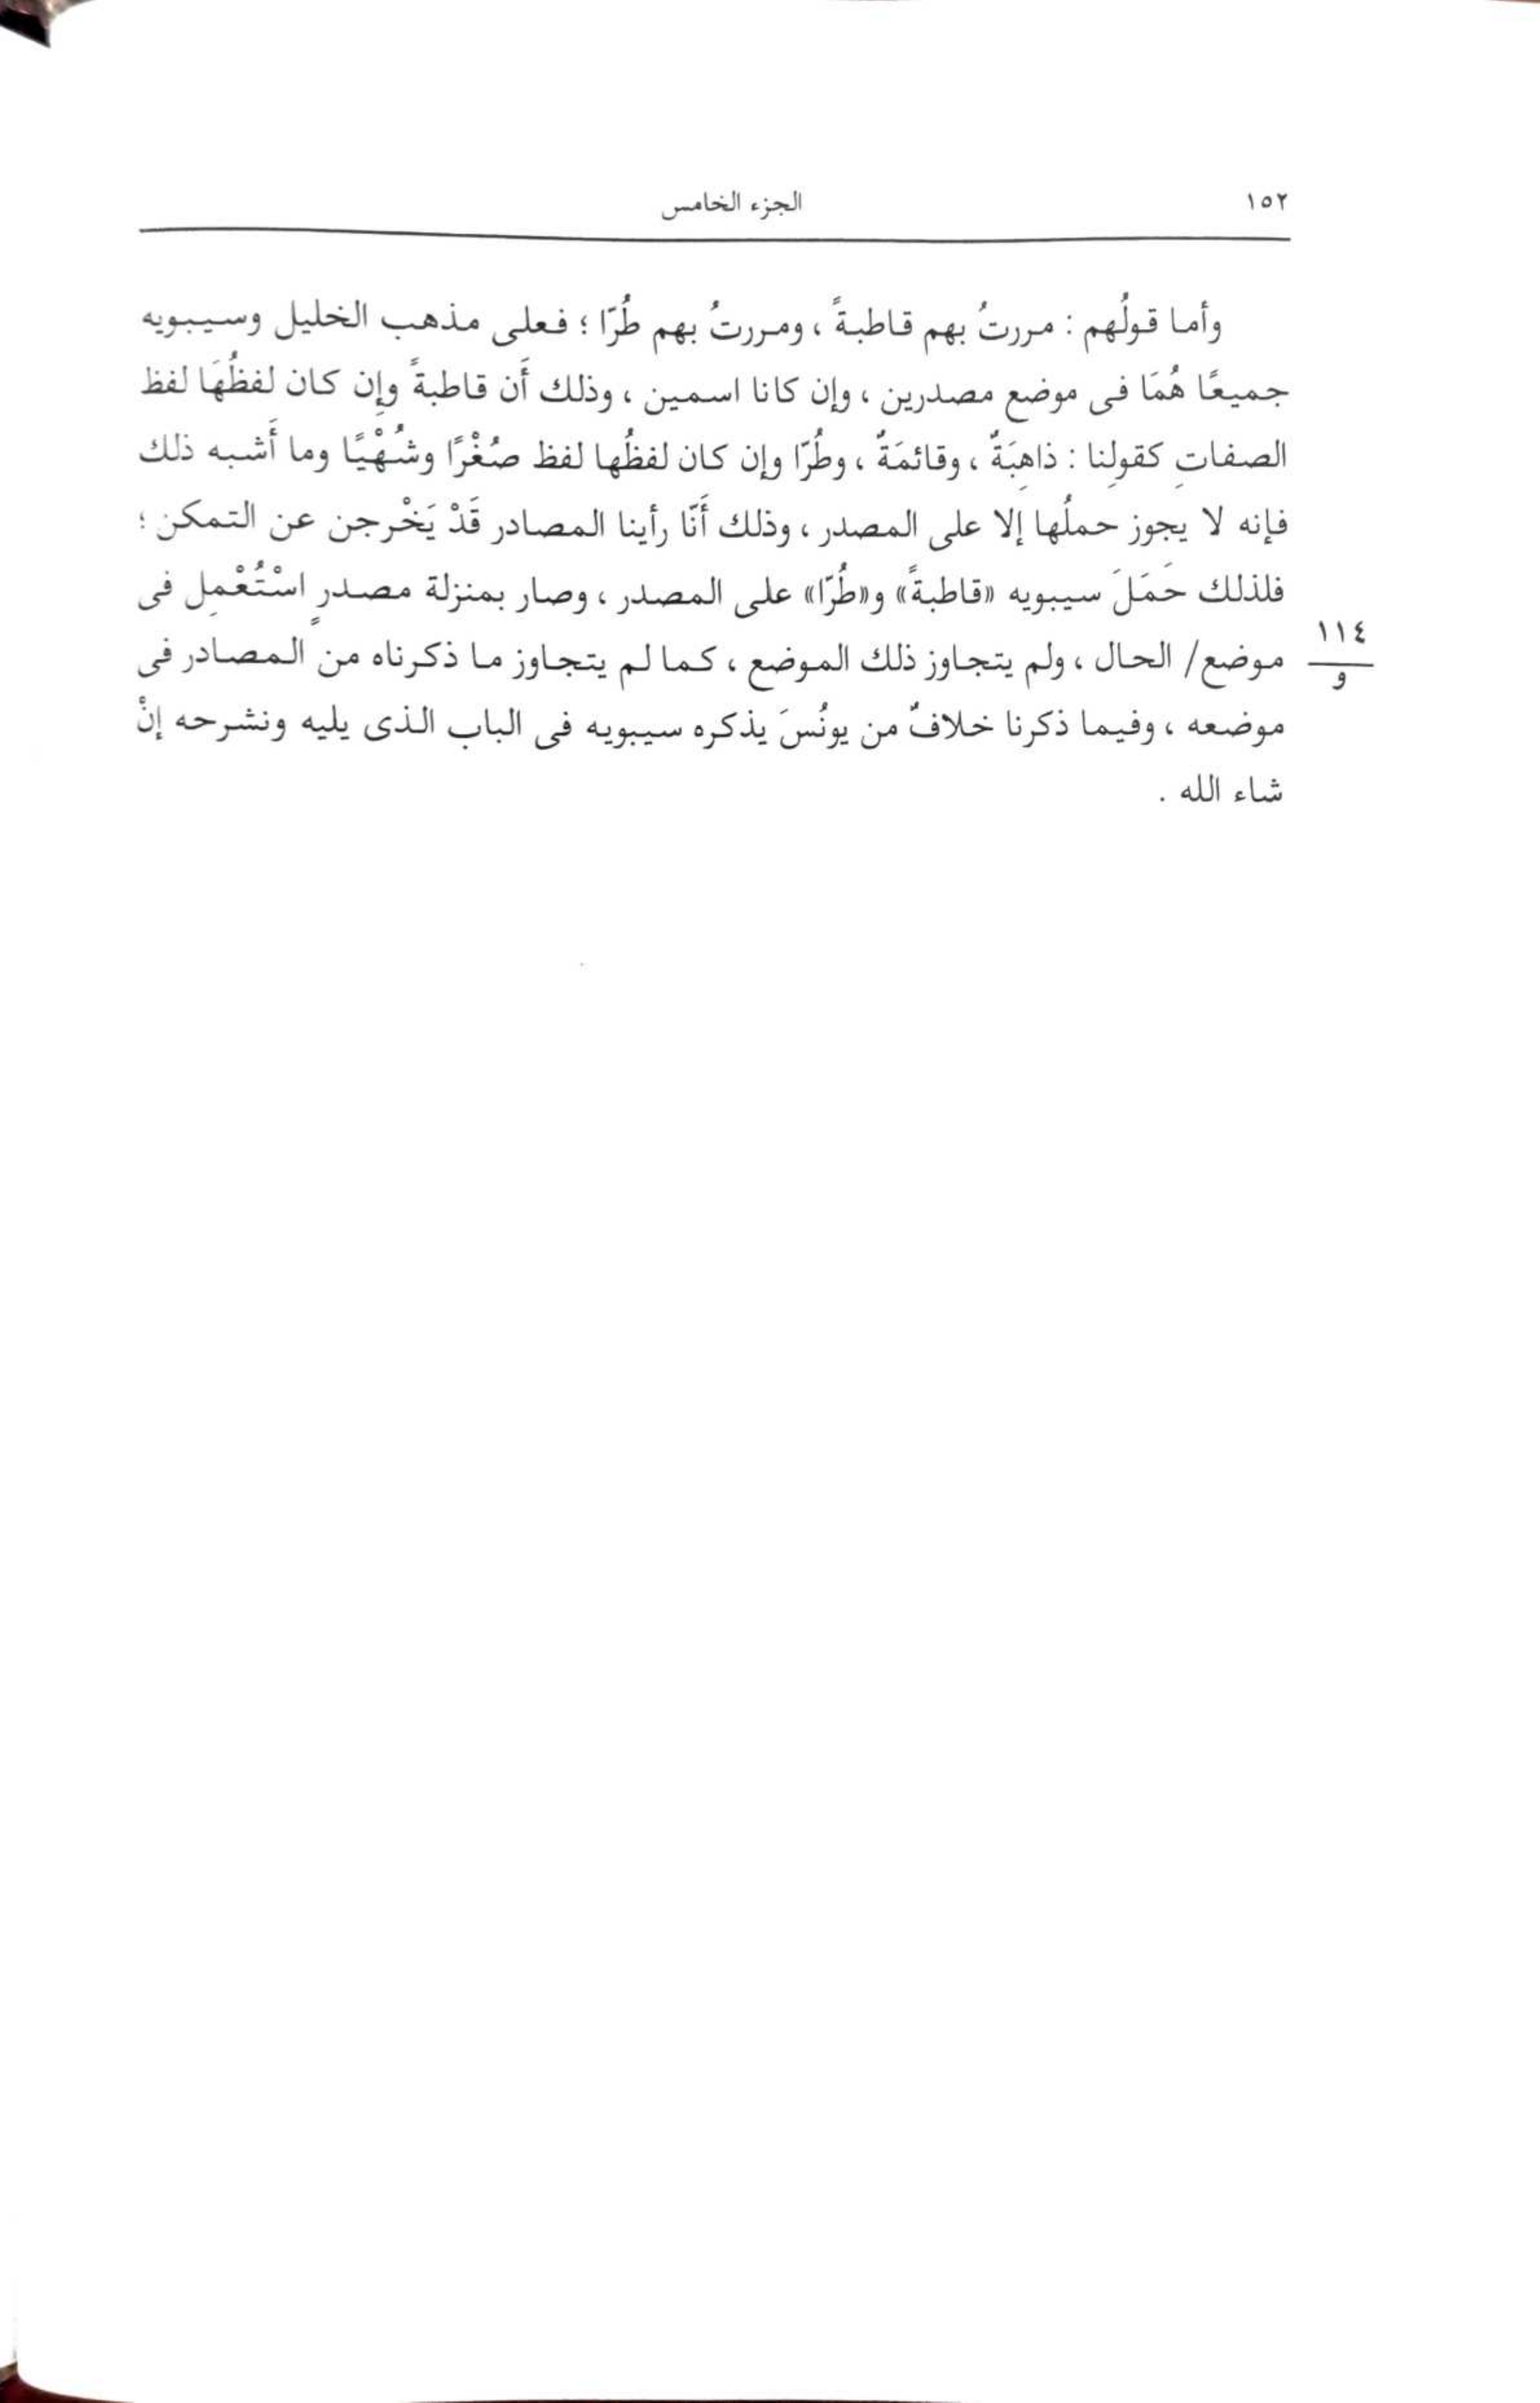 ١٥٢ الجزء الخامس
وأما قولُهم : مررتُ بهم قاطبةً ، ومررتُ بهم طُرّا ؛ فعلى مذهب الخليل وسيبويه
جميعًا هُمَا فى موضع مصدرين ، وإن كانا اسمين ، وذلك أَن قاطبةً وإِن كان لفظُهَا لفظ
الصفاتِ كقولِنا : ذاهِبَةٌ ، وقائمَةٌ ، وطُرّا وإن كان لفظُها لفظ صُغْرًا وشُهْيًا وما أَشبه ذلك
فإنه لا يجوز حملُها إلا على المصدر ، وذلك أَنّا رأينا المصادر قَدْ يَخْرجن عن التمكن ؛
فلذلك حَمَلَ سيبويه «قاطبةً» و«طُرّا» على المصدر ، وصار بمنزلة مصدرٍ اسْتُعْمِل فى
موضع/ الحال ، ولم يتجاوز ذلك الموضع ، كما لم يتجاوز ما ذكرناه من المصادر فى
١١٤
و
موضعه ، وفيما ذكرنا خلافٌ من يونُسَ يذكره سيبويه فى الباب الذى يليه ونشرحه إنْ
شاء الله .